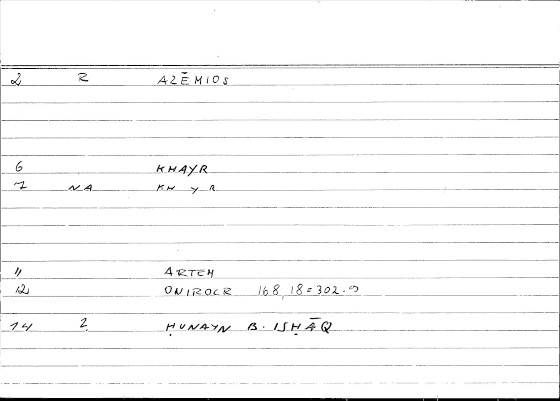 2 R AZĒMIOS
6 KHAYR
7 NA KH Y R
11 ARTEM
12 ONIROCR 168,18=302.9
14 2 ḤUNAYN B. ISḤĀQ